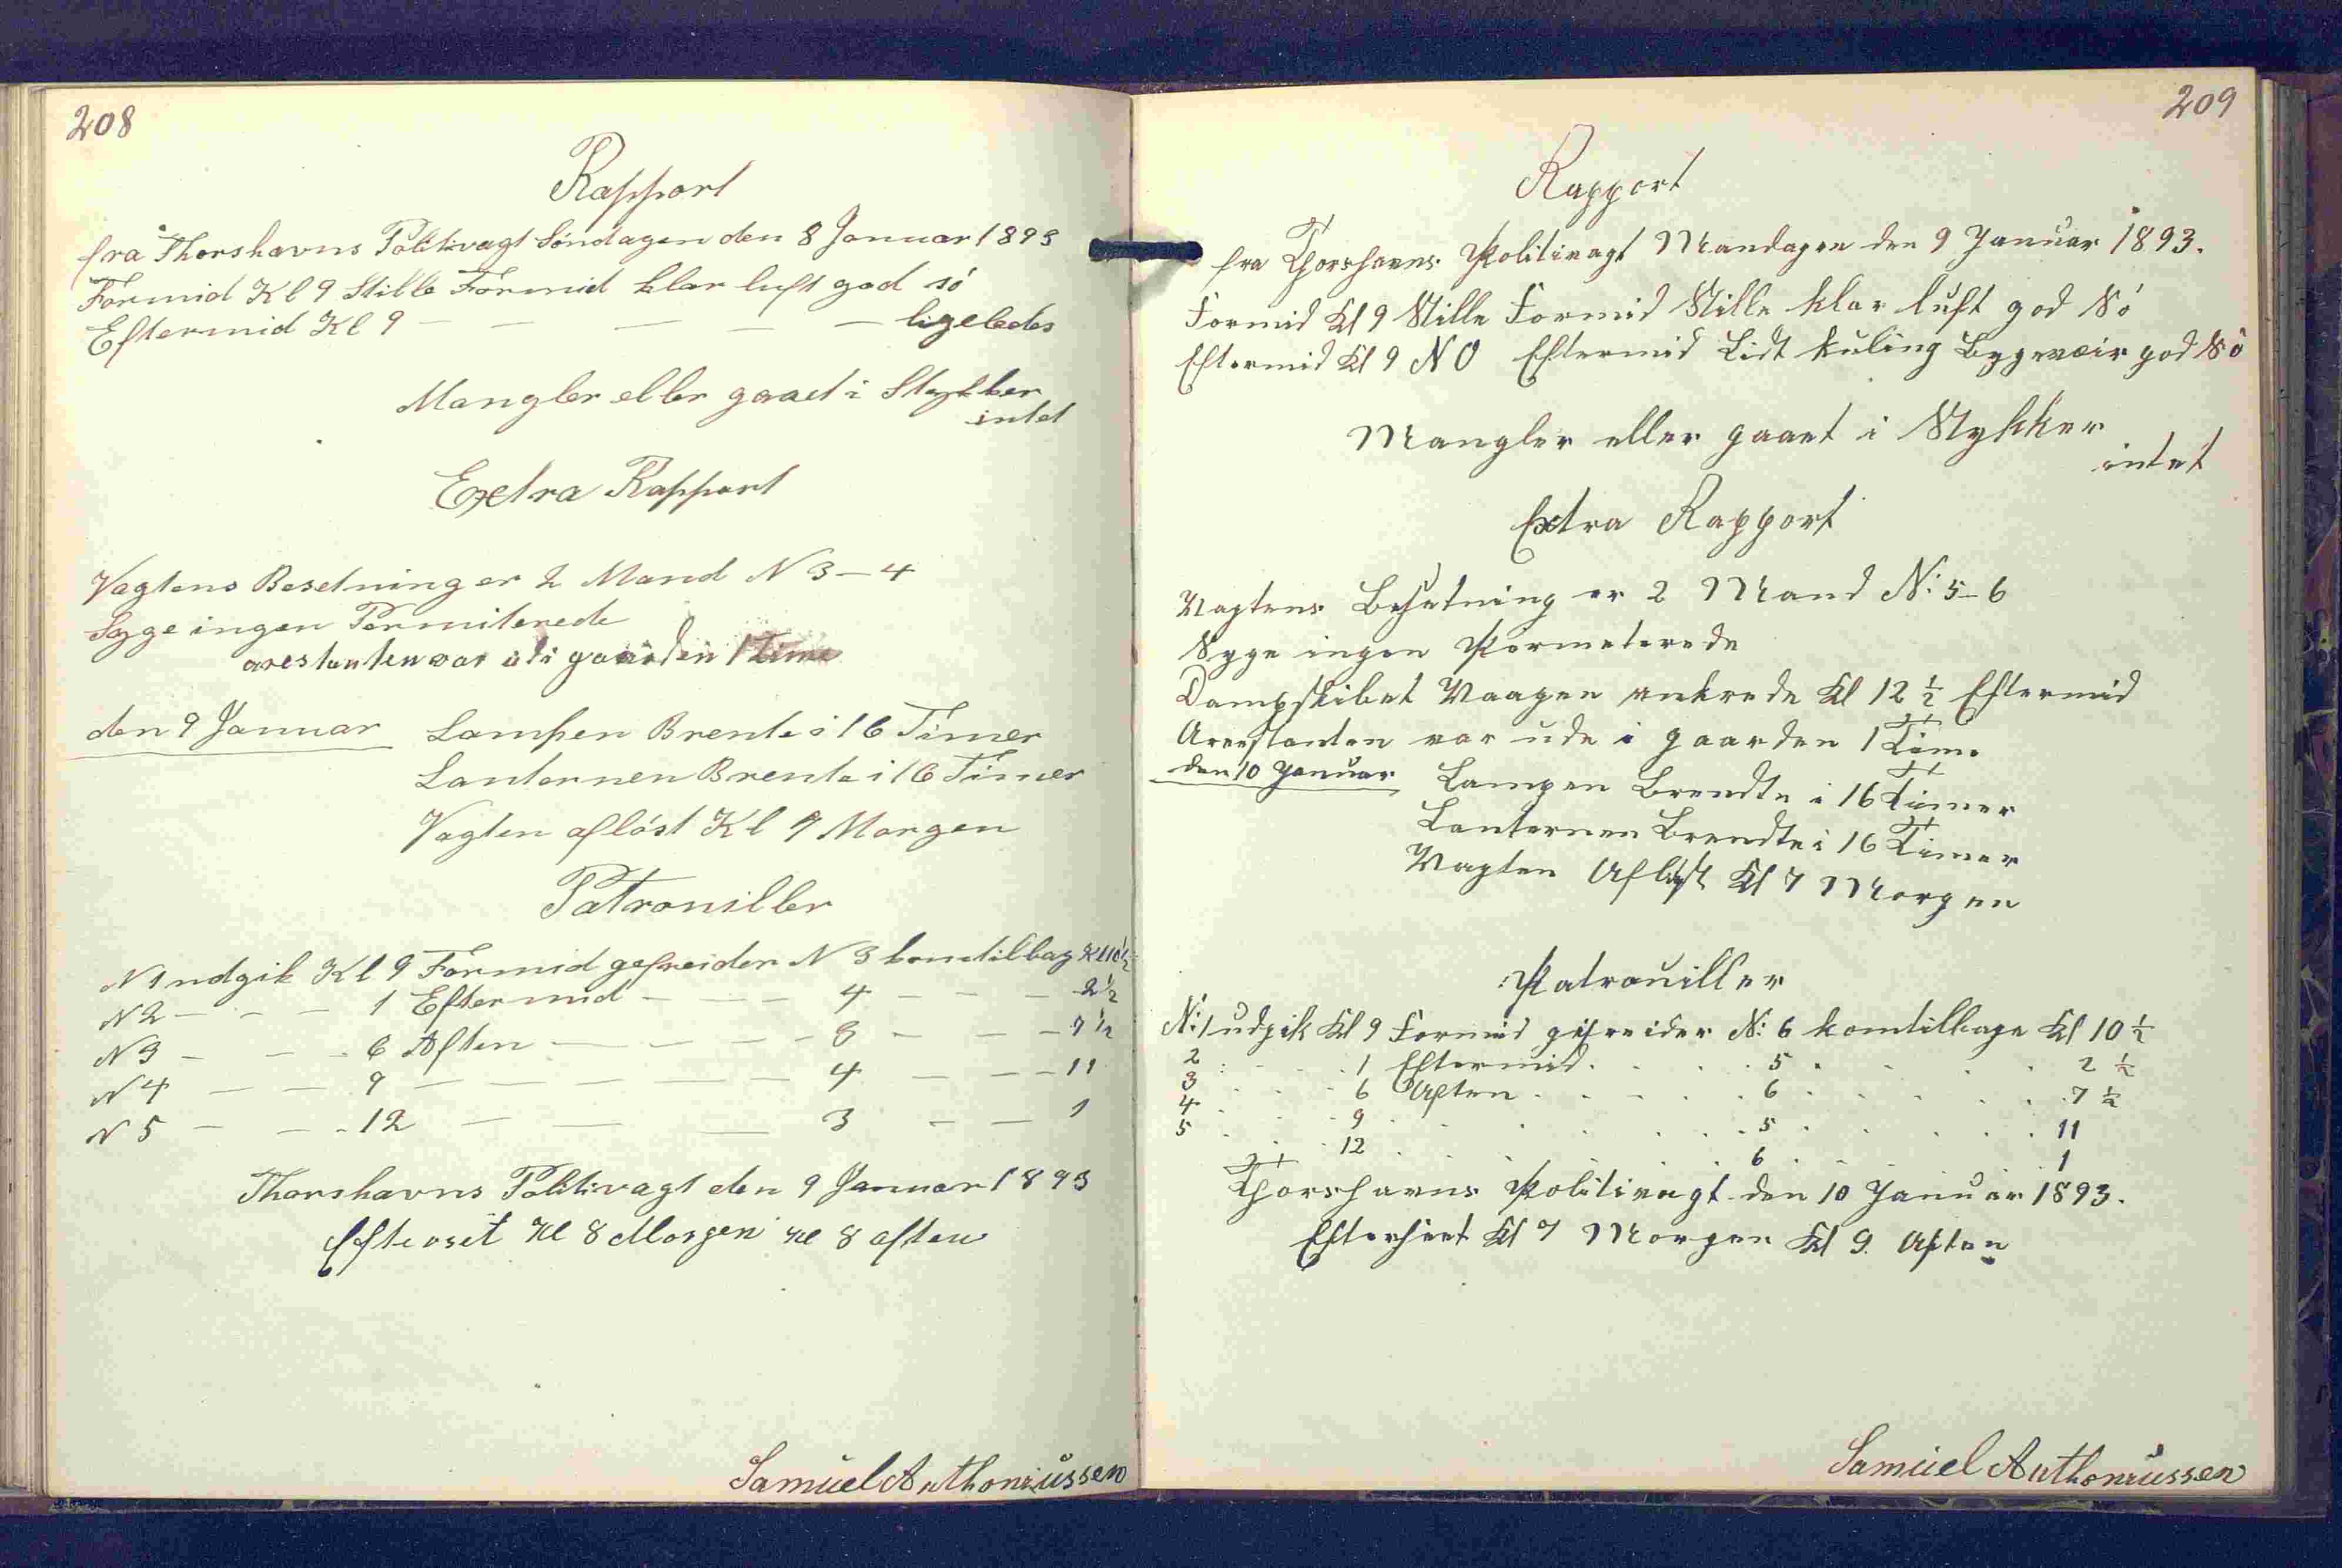 208
Rapport
fra Thorshavns Politivagt Søndagen den 8 Januar 1893
Formid Kl 9 Stille Formid klar luft god só
Eftermid Kl 9 — — — — — ligeledes
Mangler eller gaaet i Stykker
intet
Extra Rapport
Vagtens Besetning er 2 Mand N 3–4
Syge ingen Permiterede
arestanten var ude i gaarden 1 Time
den 9 Januar Lampen Brente i 16 Timer
Lanternen Brente i 16 Timer
Vagten aflóst Kl 7 Morgen
Patrouiller
N 1 udgik Kl 9 Formid gefreider N 3 kom tilbag Kl 10 1/2
N 2 — — — 1 Eftermid — — — 4 — — — 2 1/2
N 3 — — — 6 Aften — — — 3 — — — 7 1/2
N 4 — — 9 — — — — 4 — — — 11
N 5 — — 12 — — — 3 — — 1
Thorshavns Politivagt den 9 Januar 1893
Efterset Kl 8 Morgen Kl 8 aften
Samuel Anthoniussen
209
Rapport
fra Thorshavns Politivagt Mandagen den 9 Januar 1893.
Formid Kl 9 Stille Formid Stille klar luft god Só
Eftermid Kl 9 NO Eftermid Lidt kuling Bygeveir god Só
Mangler eller gaaet i Stykker
intet
Extra Rapport
Vagtens Besetning er 2 Mand N: 5–6
Syge ingen Permeterede
Dampskibet Vaagen ankrede Kl 12 1/2 Eftermid
Areestanten var ude i gaarden 1 Time
den 10 Januar Lampen Brendte i 16 Timer
Lanternen Brendte i 16 Timer
Vagten Afløst Kl 7 Morgen
Patrouiller
N: 1 udgik Kl 9 Formid gifreider N: 6 kom tilbage Kl 10 1/2
2 . . . 1 Eftermid . . . 5 . . . 2 1/2
3 . . . 6 Aften . . . 6 . . . 7 1/2
4 . . . 9 . . . 5 . . . 11
5 . . . 12 . . . 6 . . . 1
Thorshavns Politivagt den 10 Januar 1893.
Efterseet Kl 7 Morgen Kl 9. Aften
Samuel Anthoniussen